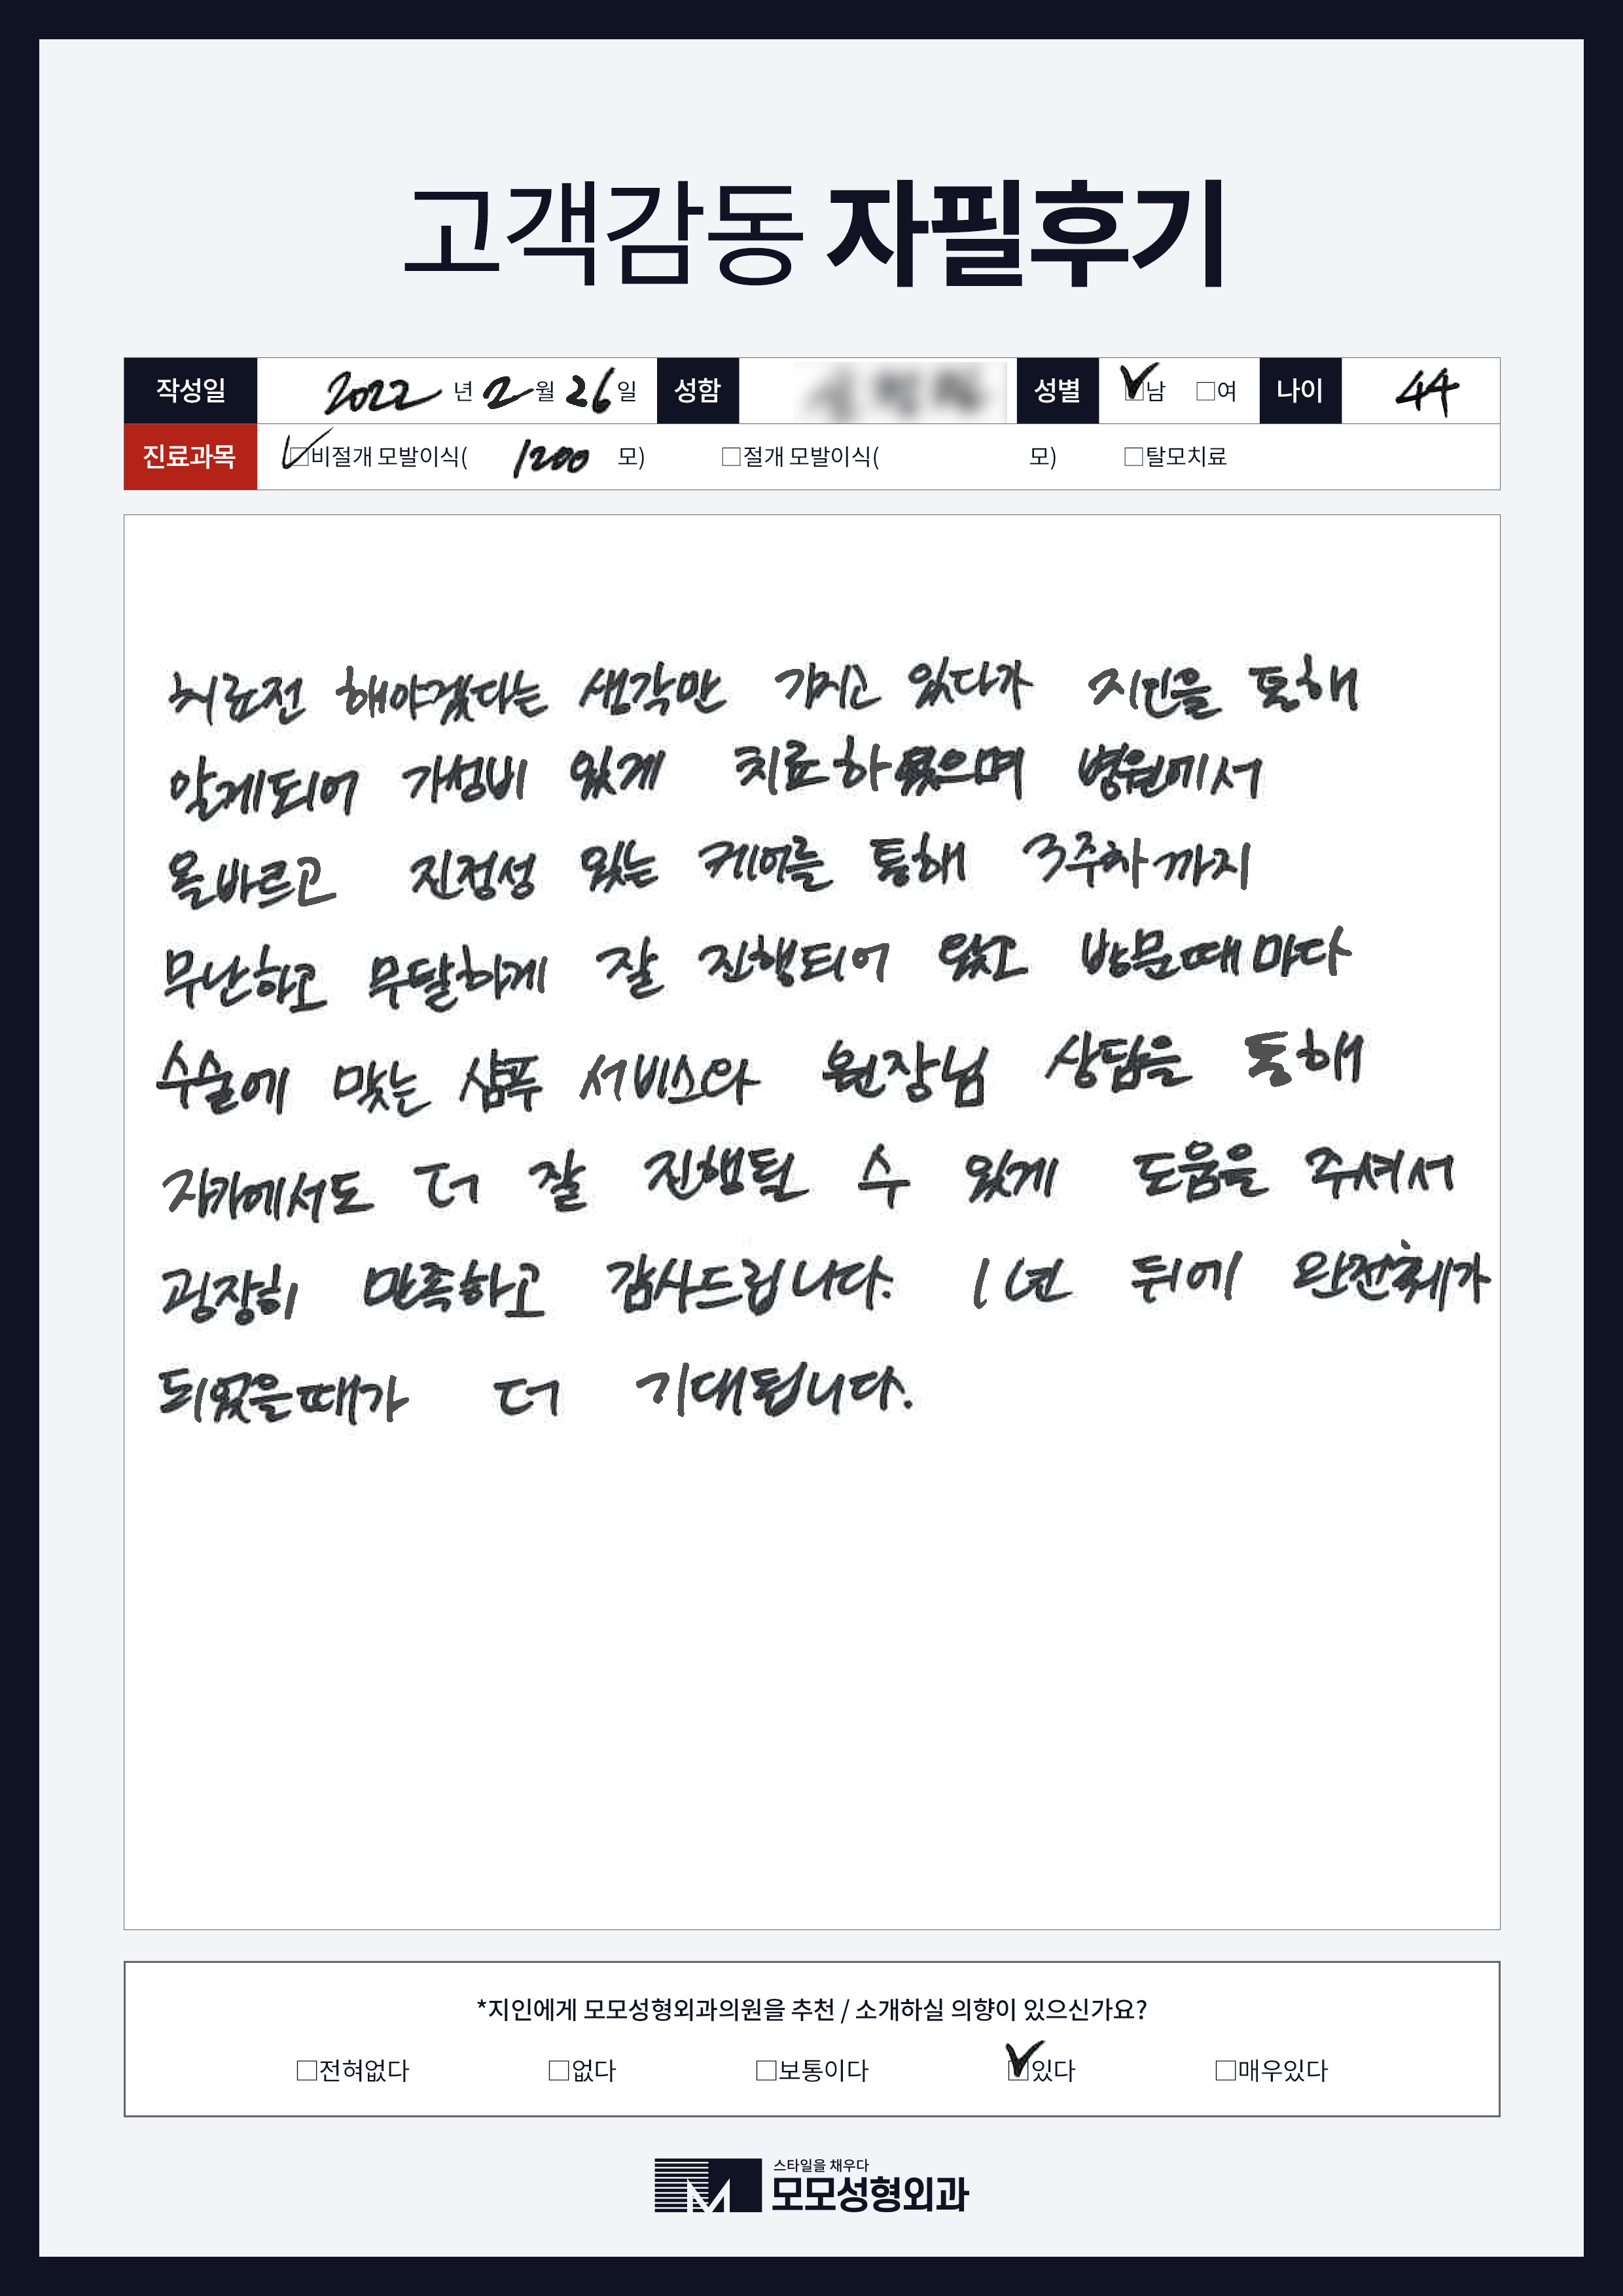 고객감동 자필후기
작성일 2022 년 2 월 26 일 성함 성별 ☑남 □여 나이 44
진료과목 ☑비절개 모발이식( 1200 모) □절개 모발이식( 모) □탈모치료
치료전 해야겠다는 생각만 가지고 있다가 지인을 통해
알게되어 가성비 있게 치료하였으며 병원에서
올바르고 진정성 있는 케어를 통해 3주차까지
무난하고 무탈하게 잘 진행되어 왔고 방문때마다
수술에 맞는 샴푸 서비스와 원장님 상담을 통해
자가에서도 더 잘 진행될 수 있게 도움을 주셔서
굉장히 만족하고 감사드립니다. 1년 뒤에 완전체가
되었을때가 더 기대됩니다.
*지인에게 모모성형외과의원을 추천 / 소개하실 의향이 있으신가요?
□전혀없다 □없다 □보통이다 ☑있다 □매우있다
스타일을 채우다
모모성형외과